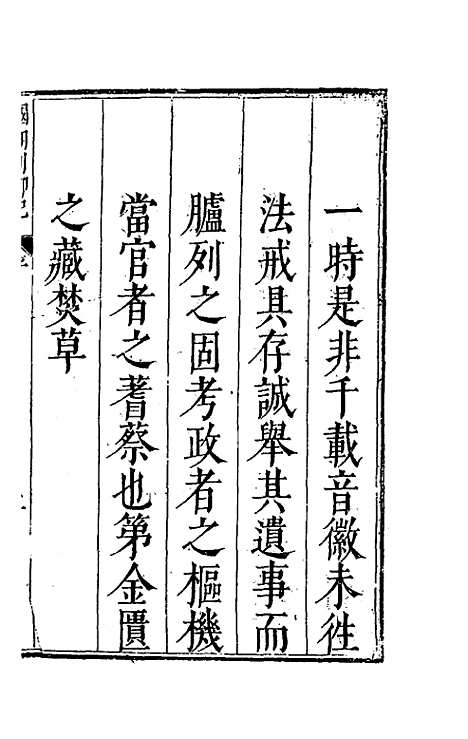 一時是非千載音徽未徃
法戒具存誠舉其遺事而
臚列之固考政者之樞機
當官者之蓍蔡也第金匱
之藏焚草